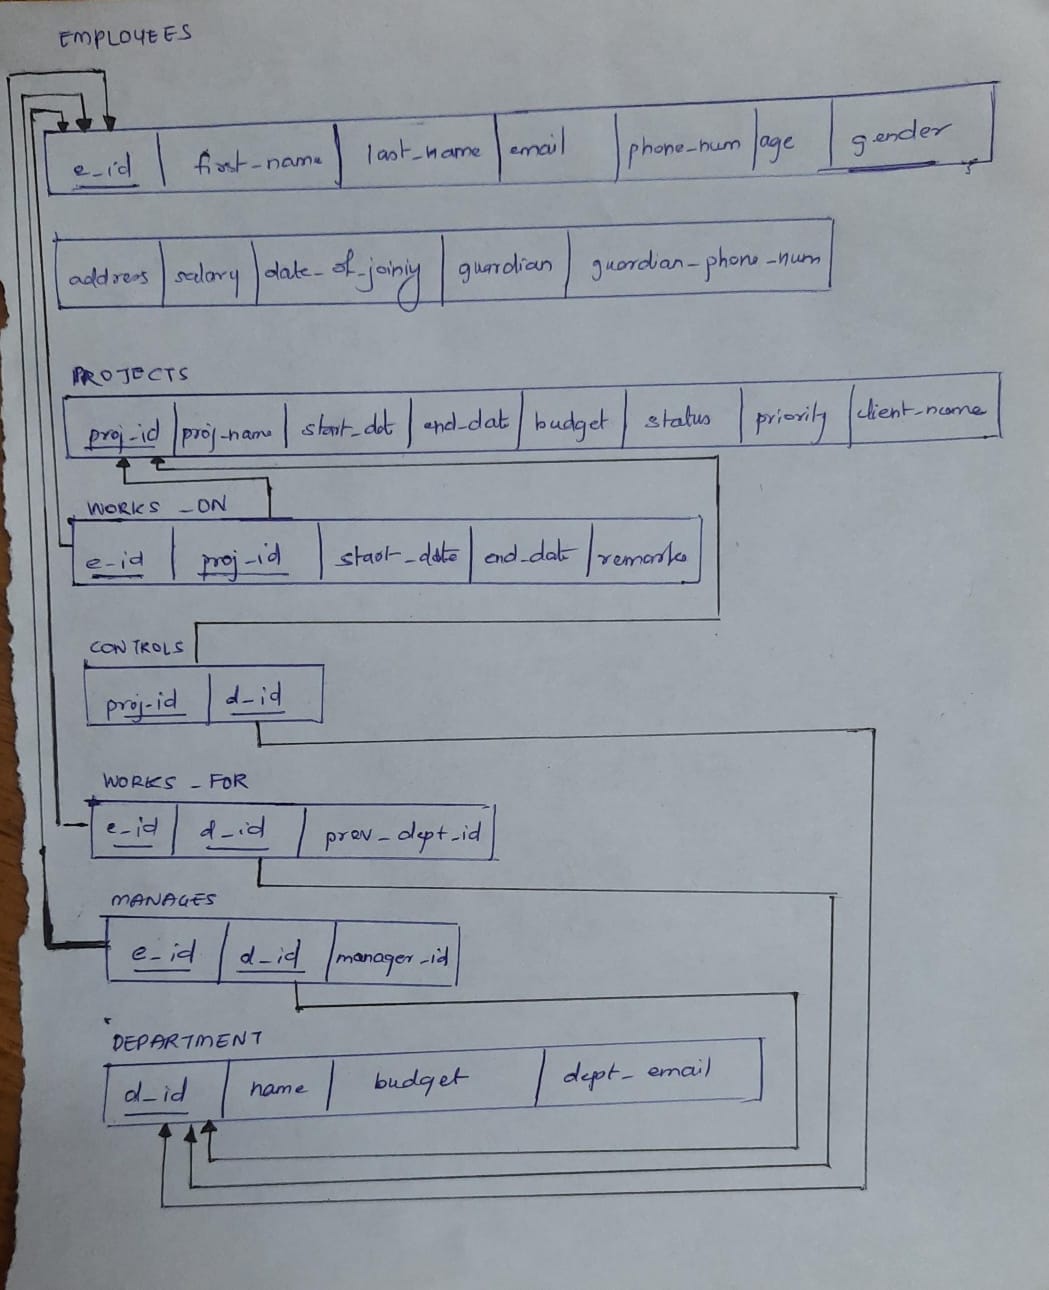 EMPLOYEES
e_id first_name last_name email phone_num age gender
address salary date_of_joining guardian guardian_phone_num
PROJECTS
proj_id proj_name start_dat end_dat budget status priority client_name
WORKS_ON
e_id proj_id start_date end_date remarks
CONTROLS
proj_id d_id
WORKS_FOR
e_id d_id prev_dept_id
MANAGES
e_id d_id manager_id
DEPARTMENT
d_id name budget dept_email